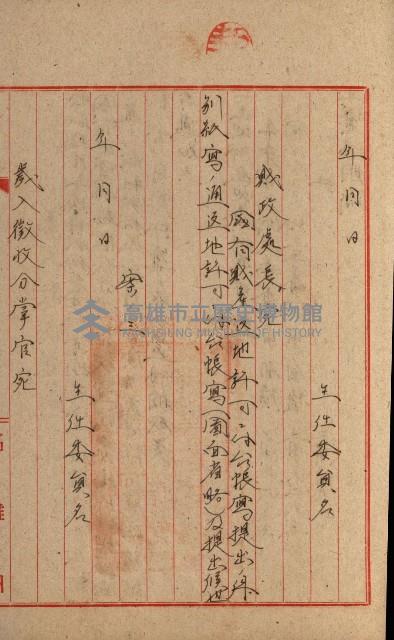 年 月 日
主任委員名
財政處長宛
國有財產返地許可ニ付台帳寫提出ノ件
別紙寫ノ通返地許可
台帳寫(圖面省略)及提出候也
案三
年 月 日
主任委員名
歲入徵收分掌官宛
高雄市立歷史博物館
KAOHSIUNG MUSEUM OF HISTORY